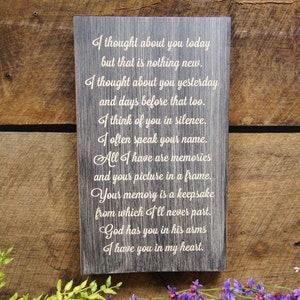 I thought about you today
but that is nothing new.
I thought about you yesterday
and days before that too.
I think of you in silence.
I often speak your name.
All I have are memories
and your picture in a frame.
Your memory is a keepsake
from which I'll never part.
God has you in his arms
I have you in my heart.